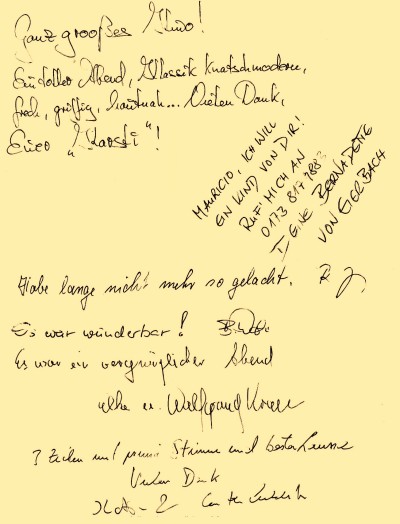 Ganz grooßes Kino!
Ein toller Abend, Klassik knatschmodern,
frech, griffig, hautnah... Vielen Dank,
Euer "Karsti"!
MAURICIO, ICH WILL
EIN KIND VON DIR!
RUF MICH AN
0173 817
BERNADETTE
VON EIERBACH
Habe lange nicht mehr so gelacht.
Es war wunderbar!
Es war ein vergnüglicher Abend
Wolfgang
3 Zeilen und Stimme und
Vielen Dank